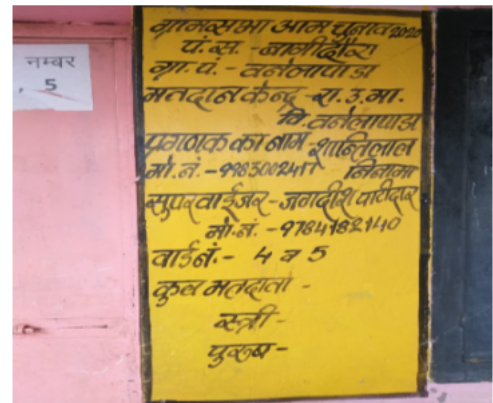 नम्बर
, 5
ग्रामसभा आम चुनाव 2020
पं.स. - बागीदौरा
ग्रा.पं. - वनेलापाडा
मतदान केन्द्र - रा.उ.मा.
वि. वनेलापाडा
प्रगणक का नाम - शान्तिलाल
मो.नं. - 9983002417 निनामा
सुपरवाईजर - जगदीश पाटीदार
मो.नं. - 9784182140
वार्ड नं. - 4 व 5
कुल मतदाता -
स्त्री -
पुरुष -